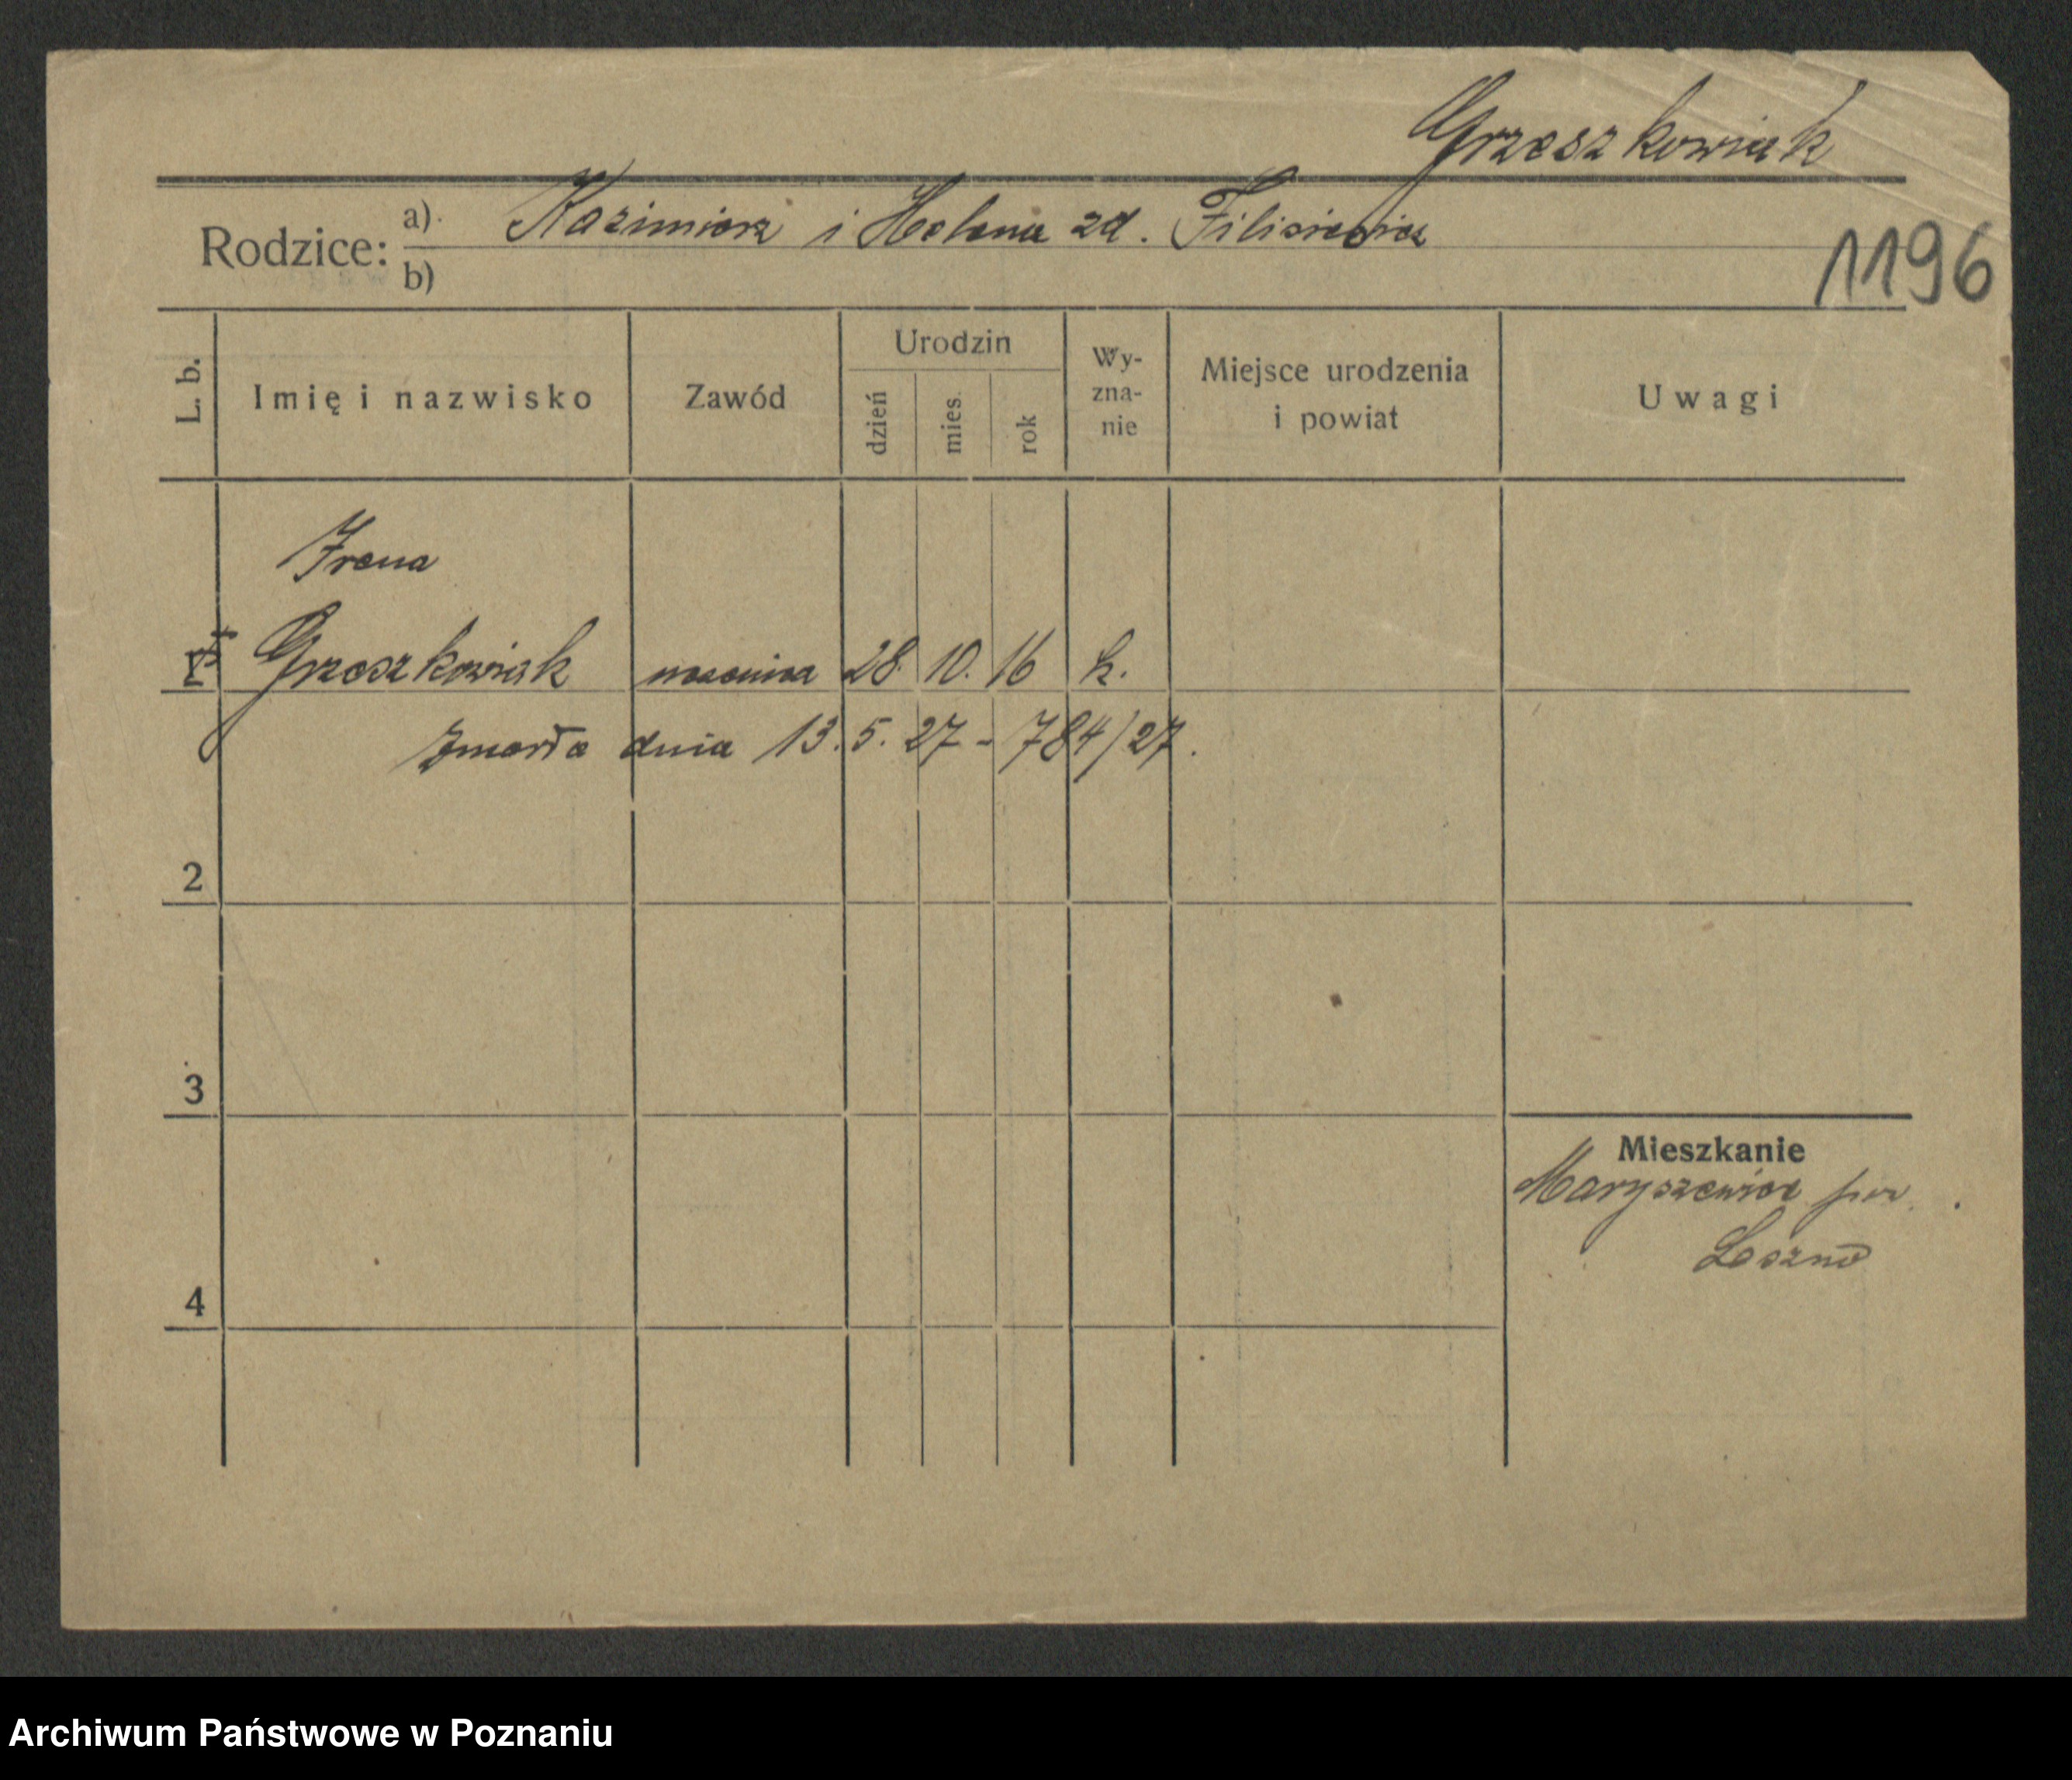 Grzeszkowiak
Rodzice: a) Kazimierz i Helena zd. Filisiewicz
b)
1196
L. b.
Imię i nazwisko
Zawód
Urodzin
dzień
mies.
rok
Wy-
zna-
nie
Miejsce urodzenia
i powiat
Uwagi
Irena
1 Grzeszkowiak uczenica 28. 10. 16 k.
Zmarła dnia 13. 5. 27 - 784/27.
2
3
4
Mieszkanie
Maryszewice pow.
Leszno
Archiwum Państwowe w Poznaniu